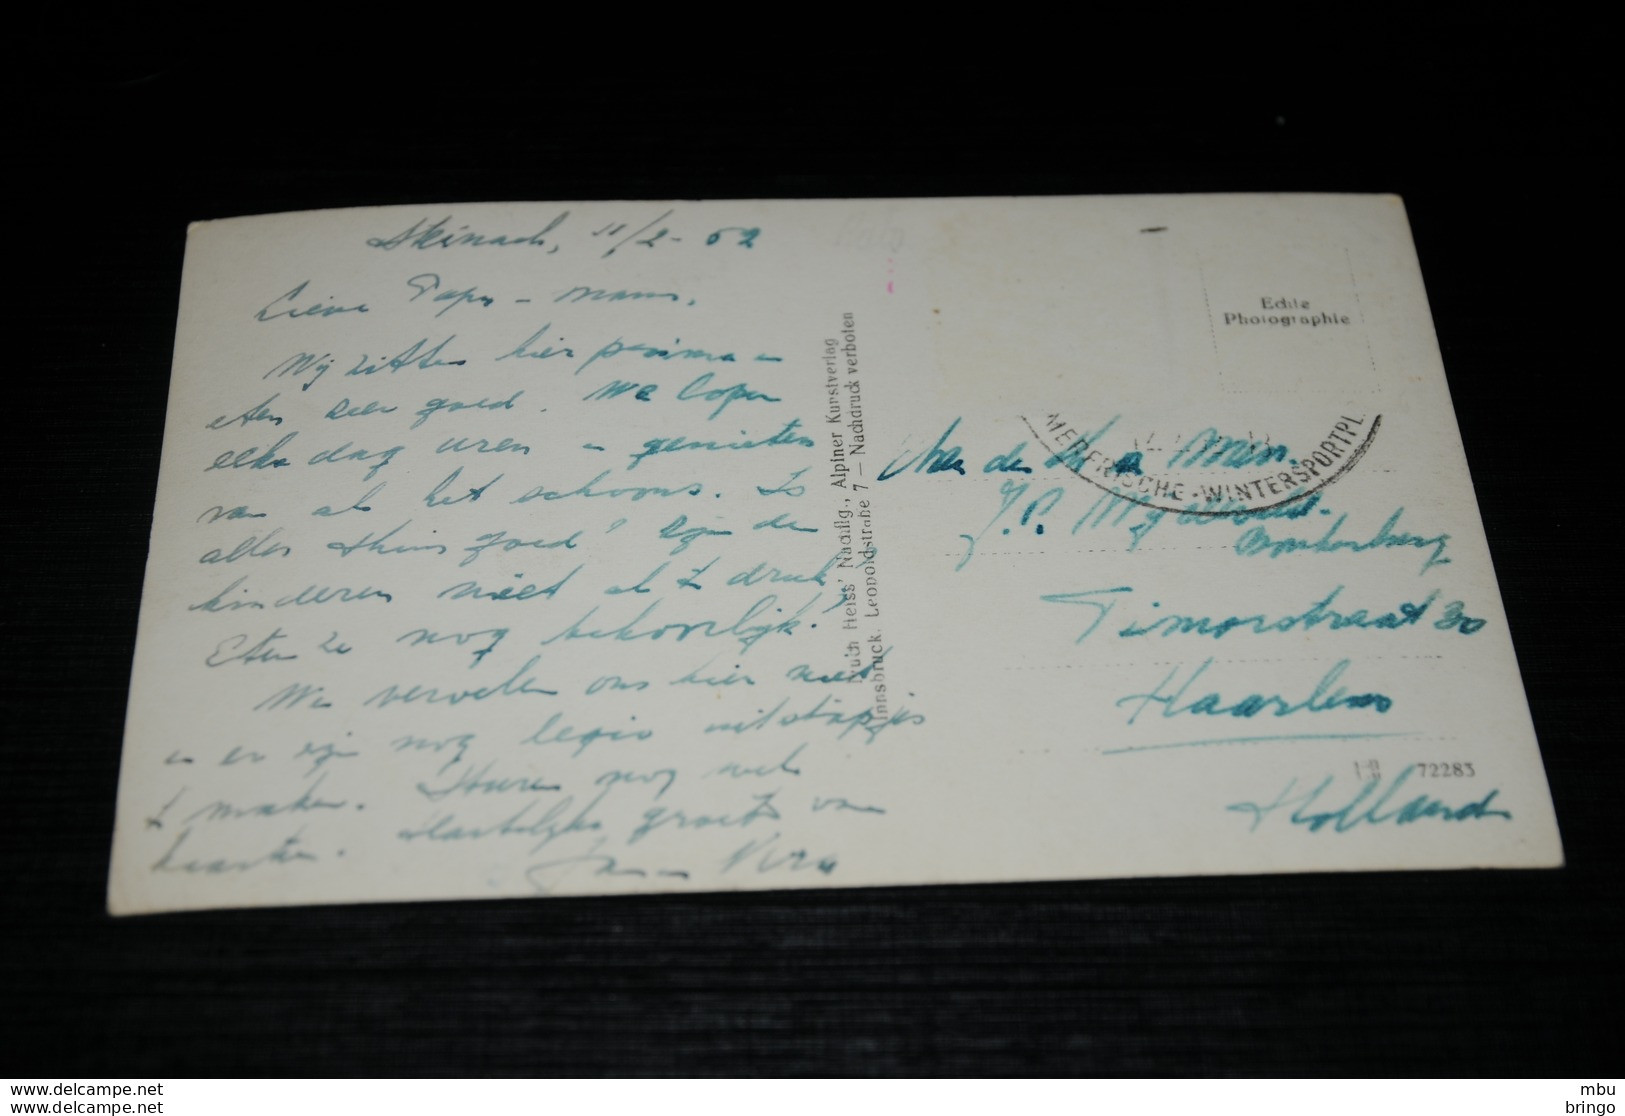 Steinach, 11/2-62
Lieve Paps - mams.
Wij zitten hier prima en
eten zeer goed. We lopen
elke dag uren en genieten
van al het schoons. Is
alles thuis goed? Zijn de
kinderen niet al te druk,
Eten ze nog behoorlijk.
We vervelen ons hier niet
en er zijn nog legio uitstapjes
te maken. Sturen nog wel
kaarten. Hartelijke groeten van
Jan en Vera
Much Heiss' Nachflg., Alpiner Kunstverlag
Innsbruck, Leopoldstraße 7 — Nachdruck verboten
Echte
Photographie
MERFRISCHE-WINTERSPORTPL
Aan de
J.P.
Timorstraat 30
Haarlem
72283
Holland
www.delcampe.net
www.delcampe.net
mbu
bringo